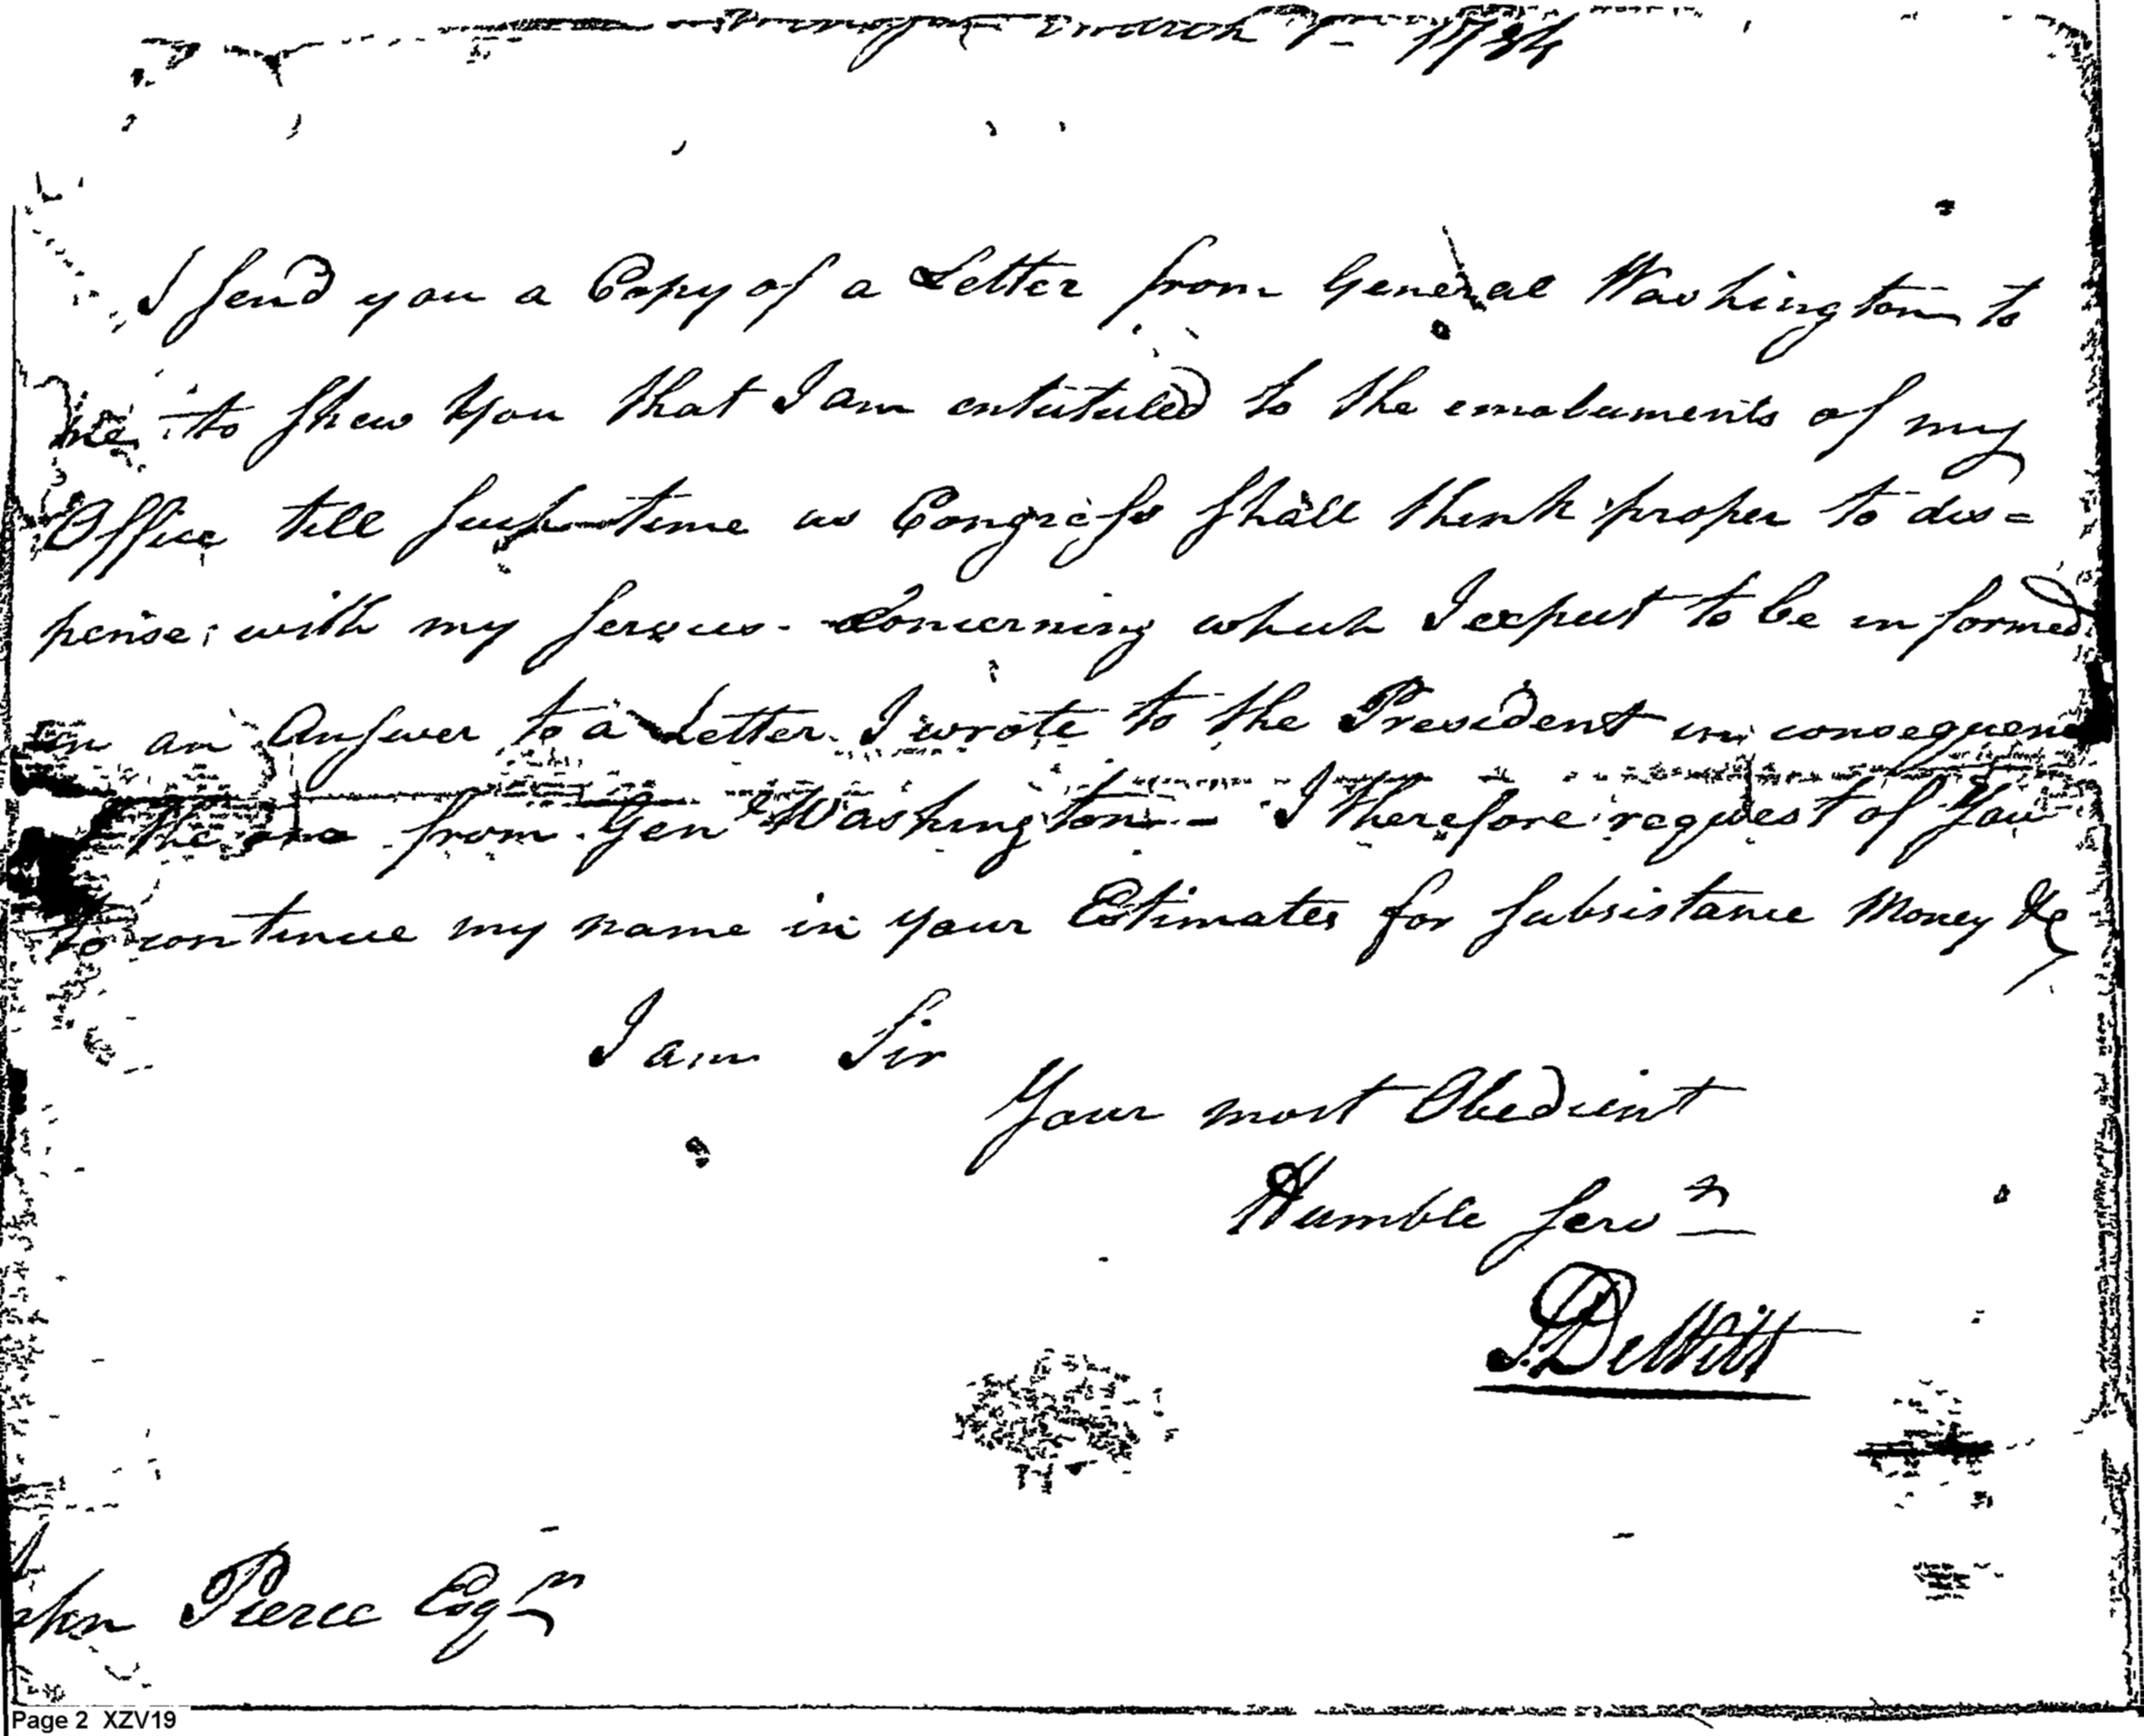 March 7 1784
I send you a Copy of a Letter from General Washington to
me to shew You that I am entituled to the emoluments of my
Office till such time as Congress shall think proper to dis=
pense with my servces - Concerning which I expect to be informed
in an Answer to a Letter I wrote to the President in consequence
the one from Gen^l Washington - I therefore request of You
to continue my name in your Estimates for Subsistance Money &c
I am Sir
Your most Obedient
Humble Serv^t
S. DeWitt
John Pierce Esq^r
Page 2 XZV19